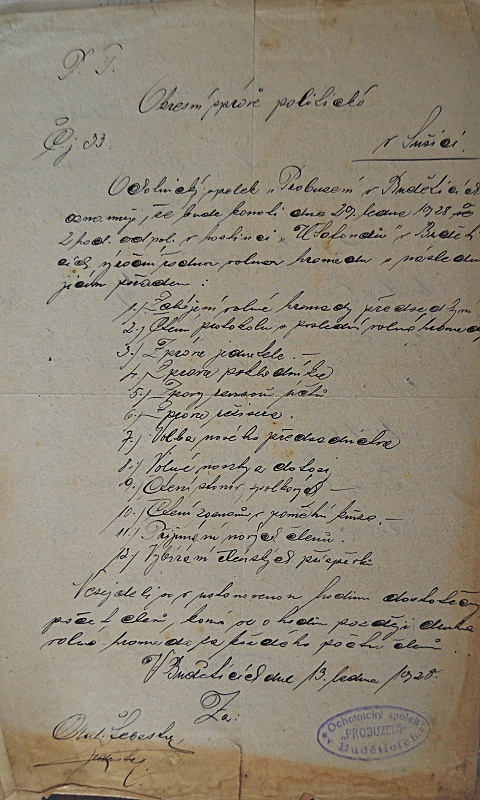 P. T.
Okresní správě politické
Čj 33.
v Sušici.
Ochotnický spolek „Probuzení v Buděticích
oznamuje, že bude konati dne 29. ledna 1928 ve
2 hod. odpol. v hostinci „U Solondů" v Budět
icích, výroční řádnou valnou hromadu s násled
jícím pořadem :
1./ Zahájení valné hromady předsedkyní
2./ Čtení protokolu o poslední valné hromadě
3./ Zpráva jednatele. —
4./ Zpráva pokladníka
5./ Zprávy revisorů účtů
6./ Zpráva režiséra.
7./ Volba nového předsednictva
8./ Volné návrhy a dotazy
9./ Čtení stanov spolkových —
10./ Čtení záznamů v pamětní knize. —
11./ Přijímání nových členů.
12./ Vybírání členských příspěvků.
Nesejde-li se v ustanovenou hodinu dostatečný
počet členů, koná se o hodinu později druhá
valná hromada za každého počtu členů.
V Buděticích dne 13. ledna 1928.
Za:
Ochotnický spolek
"PROBUZENÍ"
v Buděticích